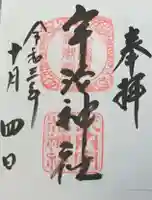 奉拝
宇治神社
令和三年
十月四日